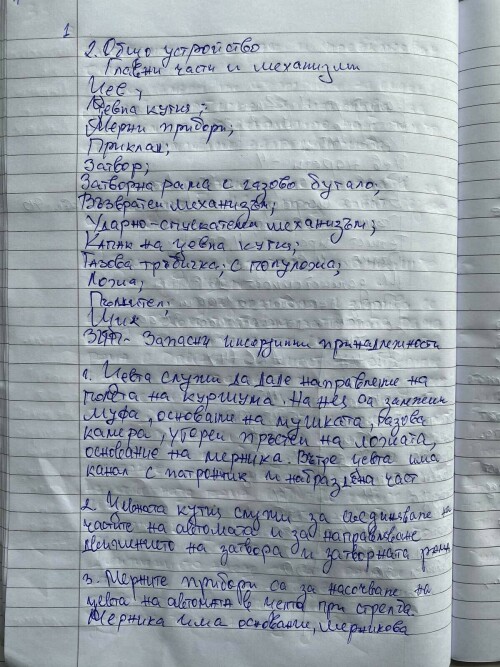 1
2. Общо устройство
Главни части и механизми
Цев;
Цевна кутия;
Мерни прибори;
Приклад;
Затвор;
Затворна рама с газово бутало;
Възвратен механизъм;
Ударно-спускателен механизъм;
Капак на цевна кутия;
Газова тръбичка; с полуложа;
Ложа;
Пълнител;
Щик
ЗИП - Запасни принадлежности
1. Цевта служи да даде направление на
полета на куршума. На нея са
муфа, основание на мушката, газова
камера, упорен пръстен на ложата,
основание на мерника. Вътре цевта има
канал с патронник и набраздена част
2. Цевната кутия служи за съединяване на
частите на автомата и за направляване
движението на затвора и затворната рама
3. Мерните прибори са за насочване на
цевта на автомата в целта при стрелба.
Мерника има основание, мерникова